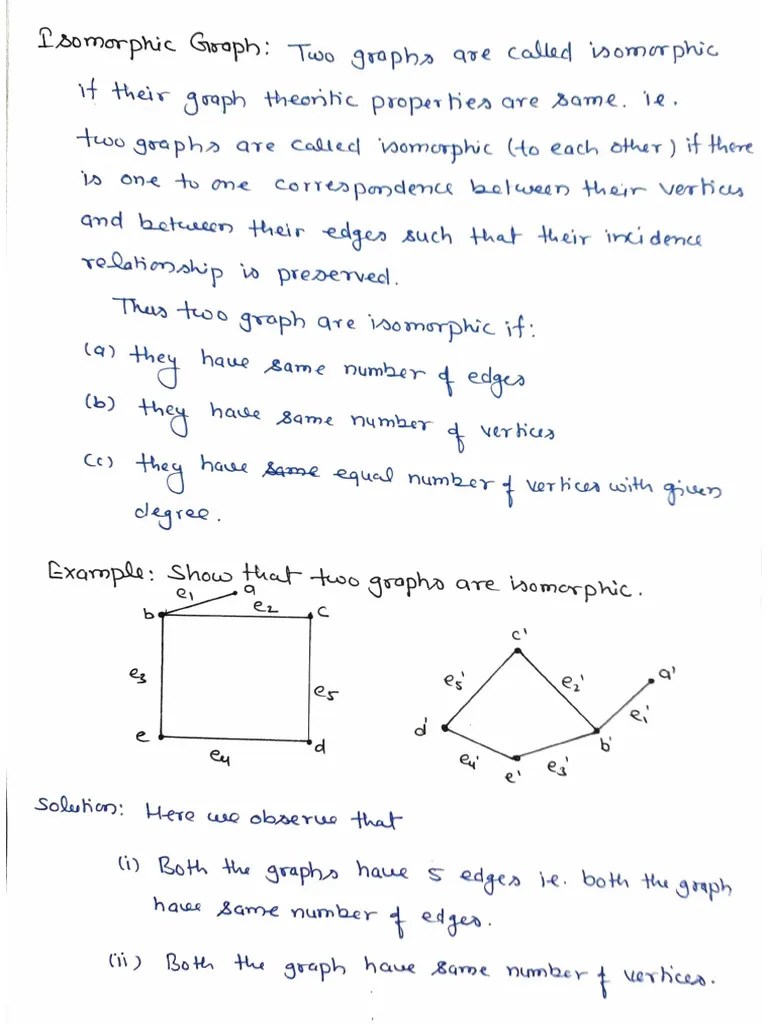 Isomorphic Graph: Two graphs are called isomorphic
if their graph theoritic properties are same. ie.
two graphs are called isomorphic (to each other) if there
is one to one correspondence between their vertices
and between their edges such that their incidence
relationship is preserved.
Thus two graph are isomorphic if:
(a) they have same number of edges
(b) they have same number of vertices
(c) they have same equal number of vertices with given
degree.
Example: Show that two graphs are isomorphic.
e1 a
b e2 c
e3 e5
e e4 d
c'
e5' e2' a'
d' e1'
e4' e' e3' b'
Solution: Here we observe that
(i) Both the graphs have 5 edges ie. both the graph
have same number of edges.
(ii) Both the graph have same number of vertices.